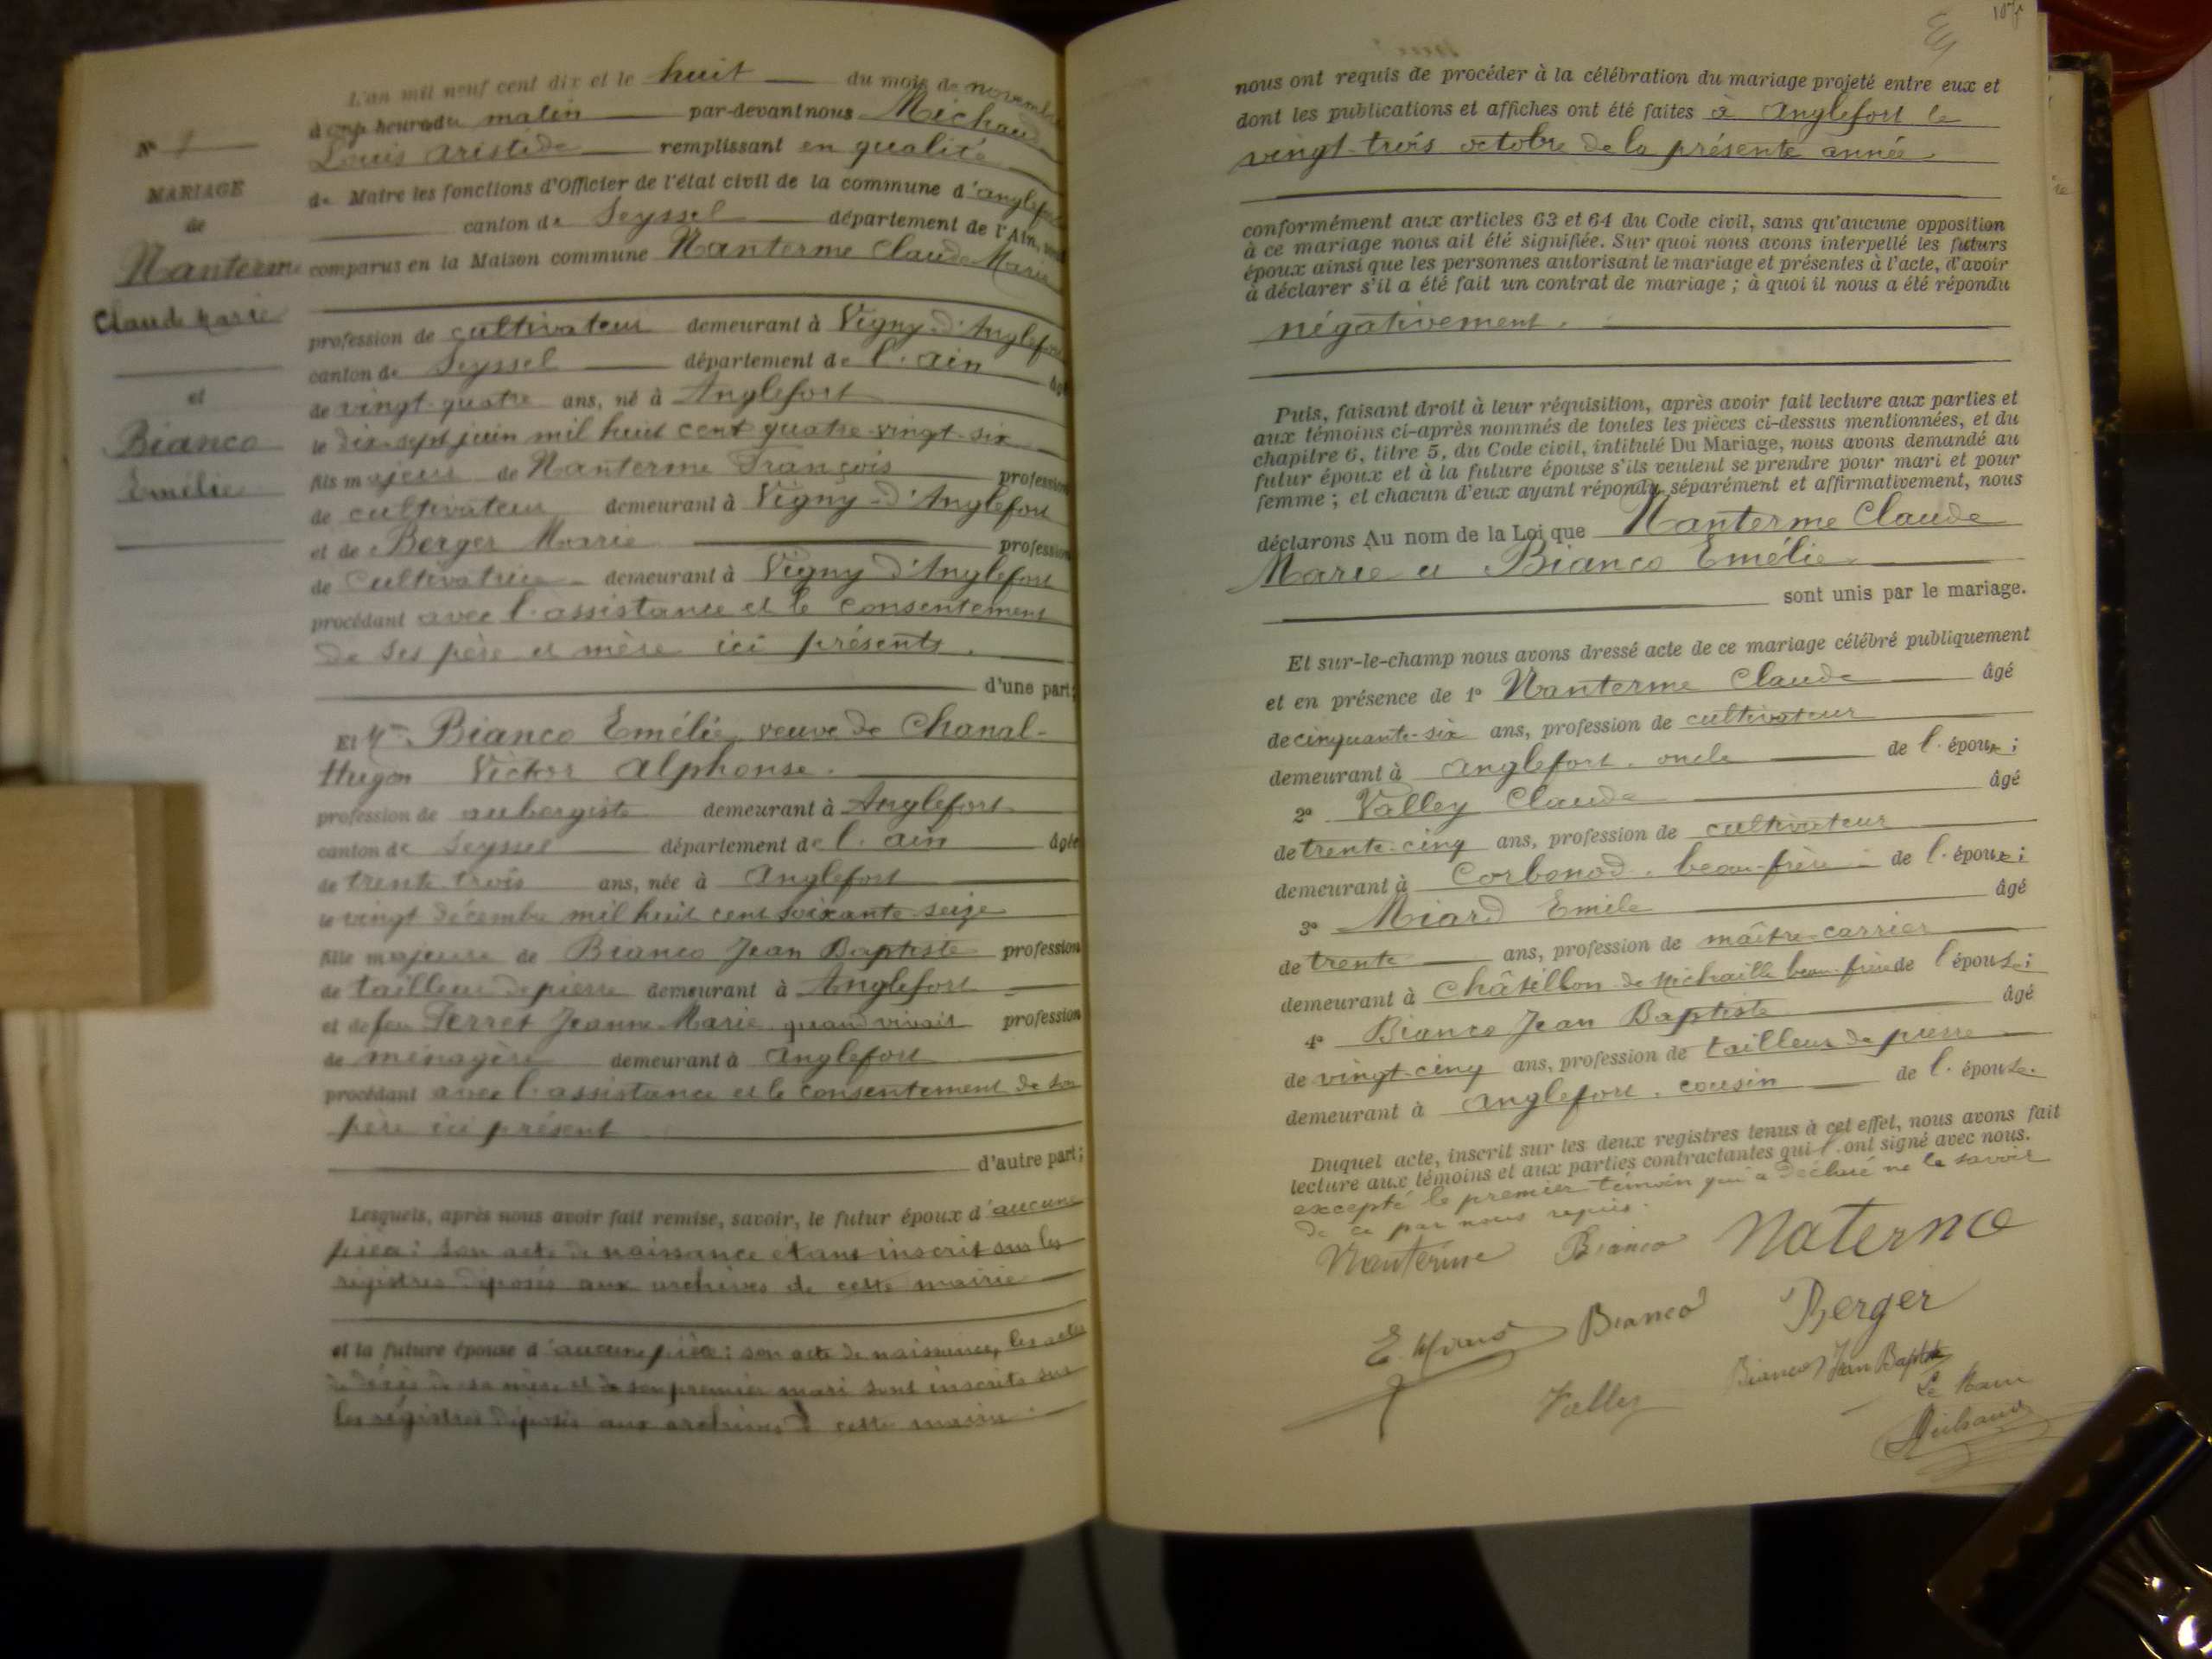 L'an mil neuf cent dix et le huit du mois de novembre
à onze heures du matin par-devant nous Michaud
Louis Aristide remplissant en qualité
de Maire les fonctions d'Officier de l'état civil de la commune d'Anglefort
canton de Seyssel département de l'Ain, sont
comparus en la Maison commune Nanterme Claude Marie
N°
MARIAGE
de
Nanterme
Claude Marie
et
Bianco
Emélie
profession de cultivateur demeurant à Vigny-d'Anglefort
canton de Seyssel département de l'Ain âgé
de vingt-quatre ans, né à Anglefort
le dix-sept juin mil huit cent quatre-vingt-six
fils majeur de Nanterme François profession
de cultivateur demeurant à Vigny-d'Anglefort
et de Berger Marie profession
de cultivatrice demeurant à Vigny d'Anglefort
procédant avec l'assistance et le consentement
de ses père et mère ici présents.
d'une part;
Et Mme Bianco Emélie, veuve de Chanal-
Hugon Victor Alphonse.
profession de aubergiste demeurant à Anglefort
canton de Seyssel département de l'Ain âgée
de trente-trois ans, née à Anglefort
le vingt décembre mil huit cent soixante seize
fille majeure de Bianco Jean Baptiste profession
de tailleur de pierre demeurant à Anglefort
et de feu Ferret Jeanne Marie quand vivait profession
de ménagère demeurant à Anglefort
procédant avec l'assistance et le consentement de son
père ici présent
d'autre part;
Lesquels, après nous avoir fait remise, savoir, le futur époux d'aucune
pièce: son acte de naissance étant inscrit sur les
registres déposés aux archives de cette mairie
et la future épouse d'aucune pièce: son acte de naissance, les actes
de décès de sa mère et de son premier mari sont inscrits sur
les registres déposés aux archives de cette mairie.
nous ont requis de procéder à la célébration du mariage projeté entre eux et
dont les publications et affiches ont été faites à Anglefort le
vingt-trois octobre de la présente année.
conformément aux articles 63 et 64 du Code civil, sans qu'aucune opposition
à ce mariage nous ait été signifiée. Sur quoi nous avons interpellé les futurs
époux ainsi que les personnes autorisant le mariage et présentes à l'acte, d'avoir
à déclarer s'il a été fait un contrat de mariage; à quoi il nous a été répondu
négativement.
Puis, faisant droit à leur réquisition, après avoir fait lecture aux parties et
aux témoins ci-après nommés de toutes les pièces ci-dessus mentionnées, et du
chapitre 6, titre 5, du Code civil, intitulé Du Mariage, nous avons demandé au
futur époux et à la future épouse s'ils veulent se prendre pour mari et pour
femme; et chacun d'eux ayant répondu séparément et affirmativement, nous
déclarons Au nom de la Loi que Nanterme Claude
Marie et Bianco Emélie
sont unis par le mariage.
Et sur-le-champ nous avons dressé acte de ce mariage célébré publiquement
et en présence de 1° Nanterme Claude âgé
de cinquante-six ans, profession de cultivateur
demeurant à Anglefort. oncle de l'époux;
2° Valley Claude âgé
de trente-cinq ans, profession de cultivateur
demeurant à Corbonod. beau-frère de l'époux;
3° Miard Emile âgé
de trente ans, profession de maître-carrier
demeurant à Châtillon de Michaille beau-frère de l'épouse;
4° Bianco Jean Baptiste âgé
de vingt-cinq ans, profession de tailleur de pierre
demeurant à Anglefort. cousin de l'épouse.
Duquel acte, inscrit sur les deux registres tenus à cet effet, nous avons fait
lecture aux témoins et aux parties contractantes qui l'ont signé avec nous.
excepté le premier témoin qui a déclaré ne le savoir
de ce par nous requis.
Nanterme Bianco Naterme
Bianco Berger
Valley Bianco Jean Baptiste
Le Maire
Michaud